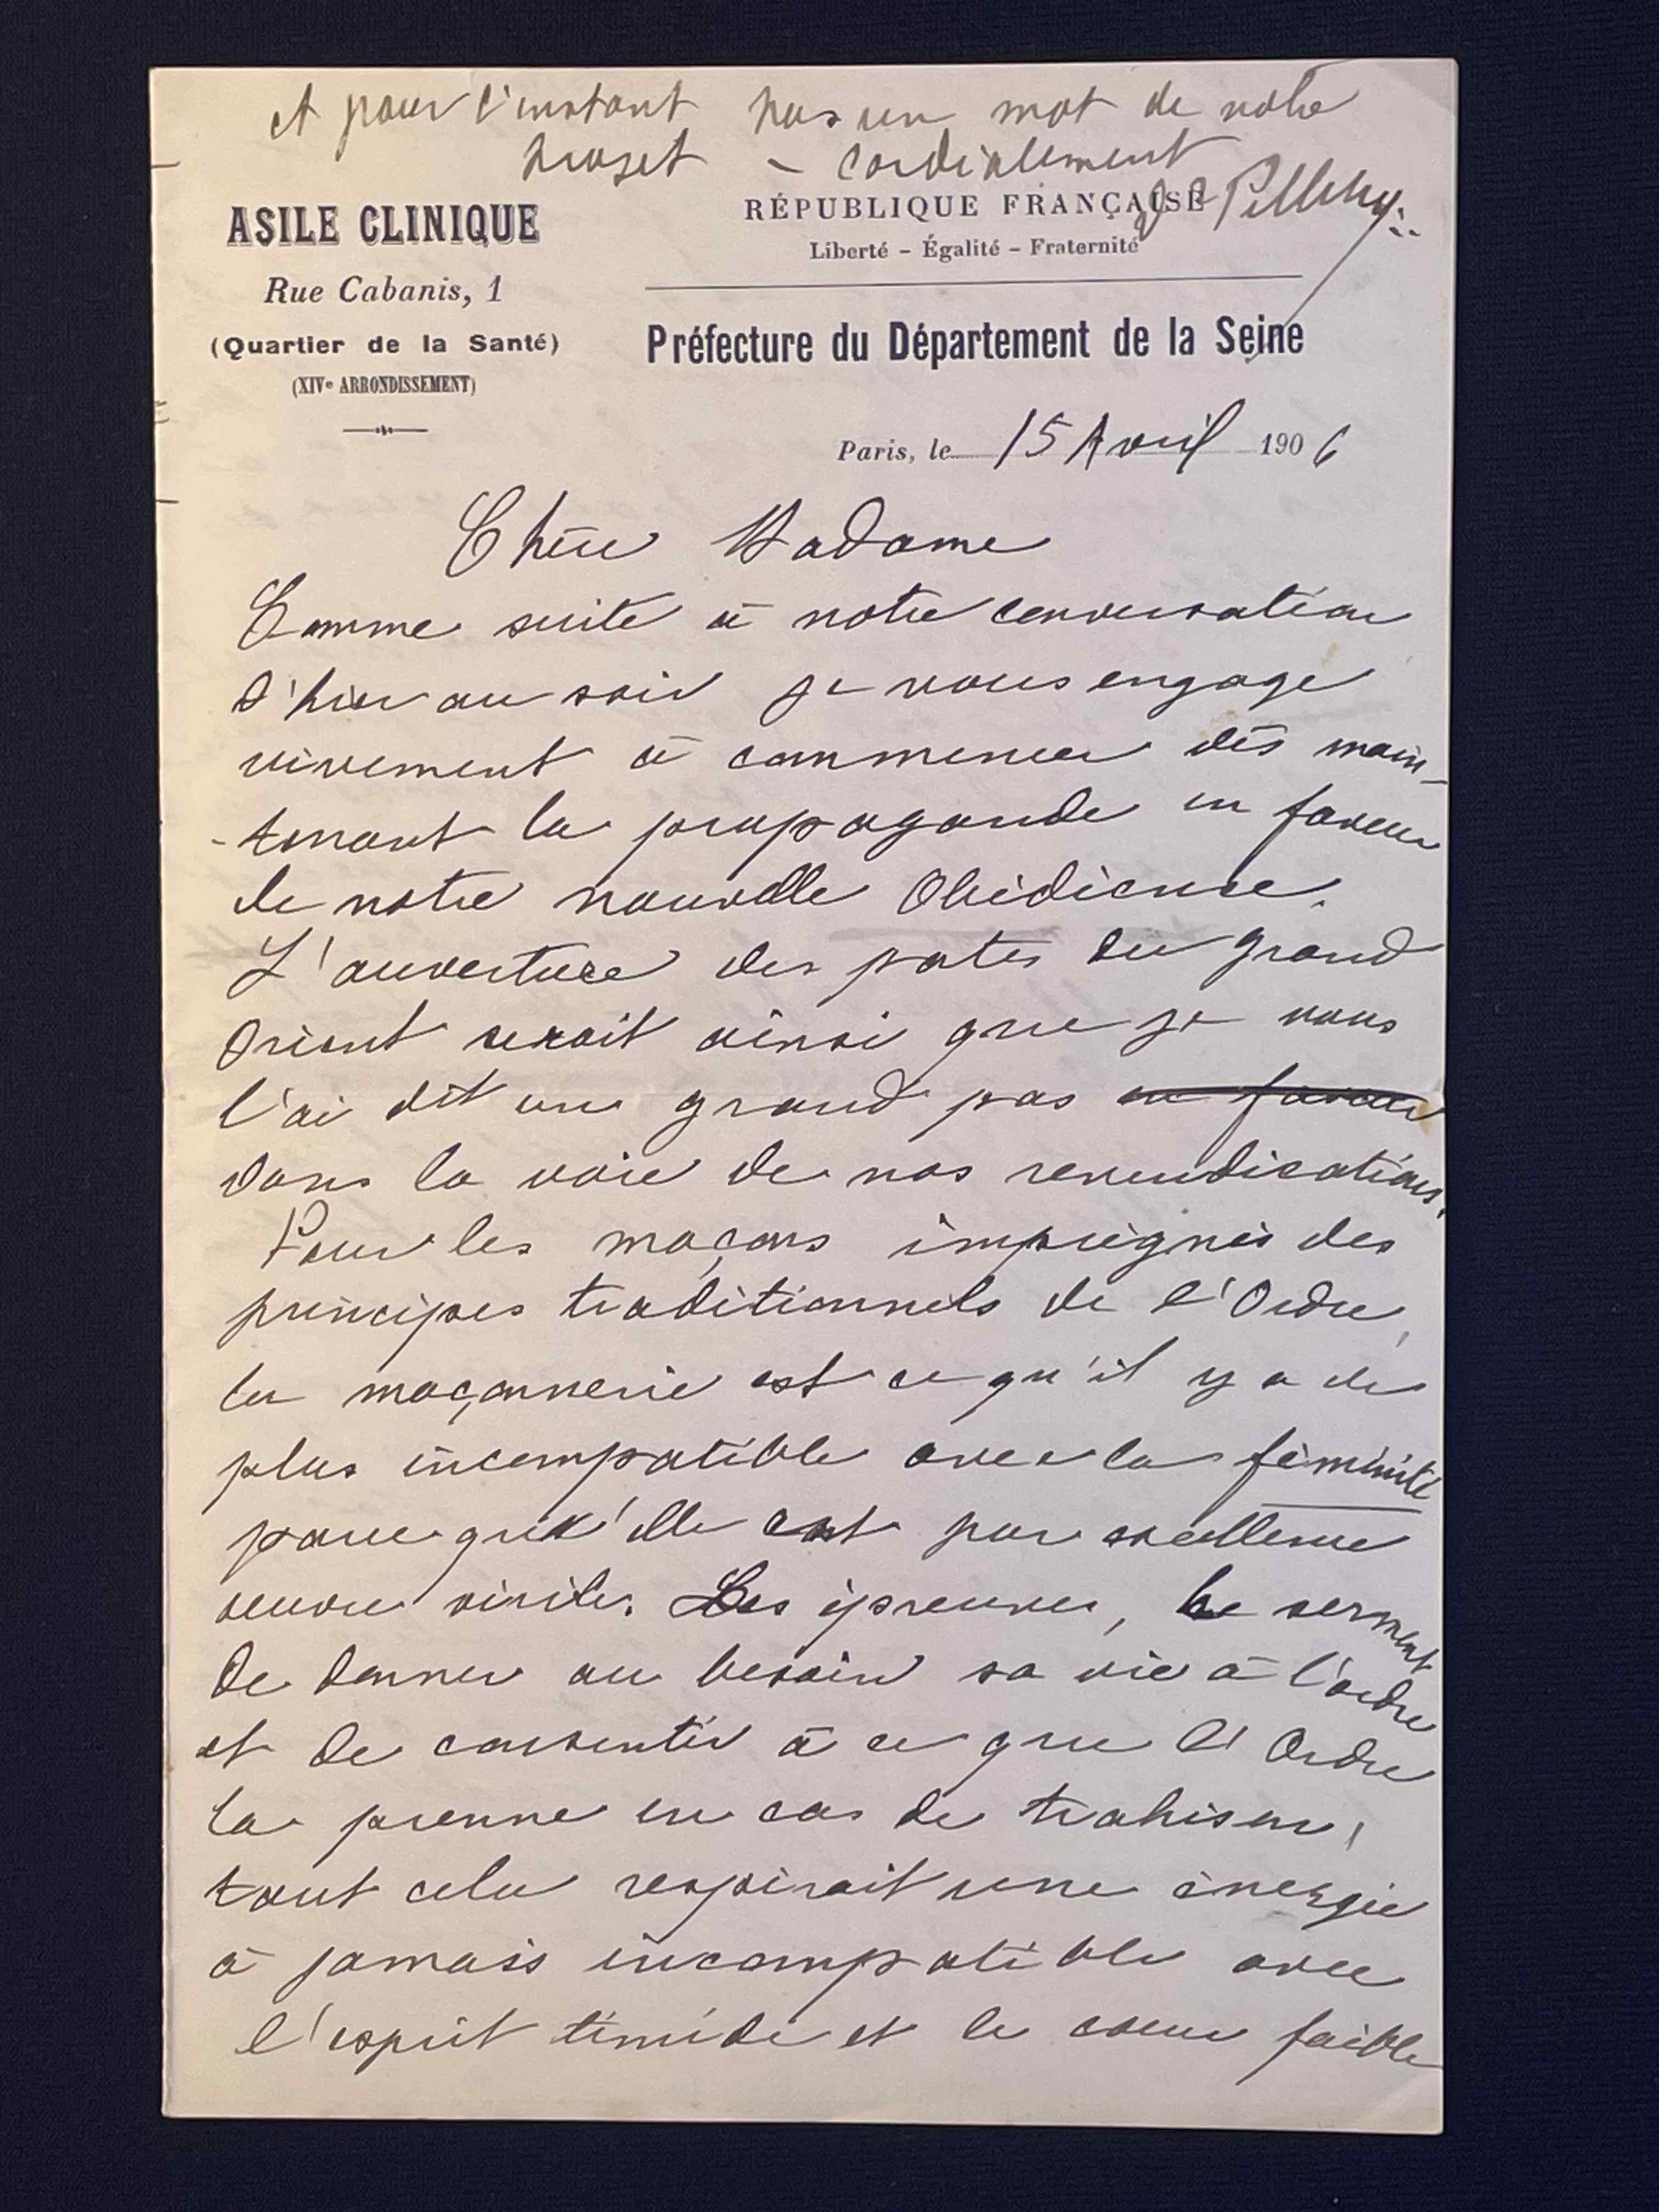 et pour l'instant pas un mot de notre
projet – cordialement
Dr Pelletier
ASILE CLINIQUE
Rue Cabanis, 1
(Quartier de la Santé)
(XIVe ARRONDISSEMENT)
RÉPUBLIQUE FRANÇAISE
Liberté – Égalité – Fraternité
Préfecture du Département de la Seine
Paris, le 15 Avril 1906
Chère Madame
Comme suite à notre conversation
d'hier au soir je vous engage
vivement à commencer dès main-
-tenant la propagande en faveur
de notre nouvelle Obédience.
L'ouverture des portes du grand
Orient serait ainsi que je vous
l'ai dit un grand pas en faveur
dans la voie de nos revendications.
Pour les maçons imprégnés des
principes traditionnels de l'Ordre,
la maçonnerie est ce qu'il y a de
plus incompatible avec la féminité
parce qu'elle est par excellence
oeuvre virile. Les épreuves, le serment
de donner au besoin sa vie à l'ordre
et de consentir à ce que l'Ordre
la prenne en cas de trahison,
tout cela respirait une énergie
à jamais incompatible avec
l'esprit timide et le coeur faible